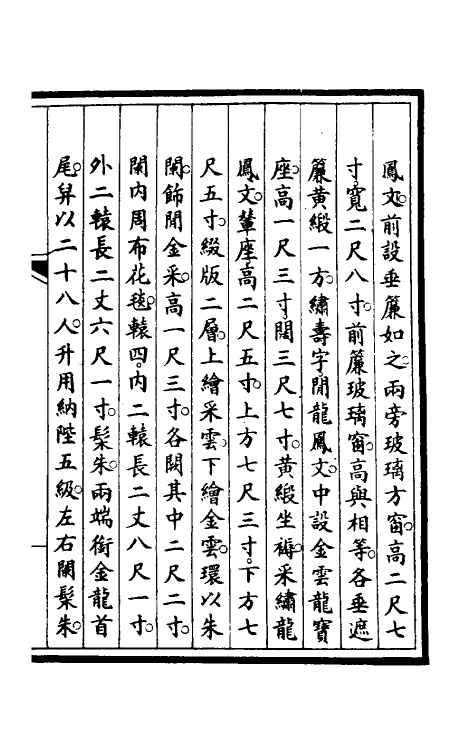 鳳文。前設垂簾如之。兩旁玻璃方窗。高二尺七
寸。寬二尺八寸。前簾玻璃窗。高與相等。各垂遮
簾黃緞一方。繡壽字。閒龍鳳文。中設金雲龍寶
座。高一尺三寸。闊三尺七寸。黃緞坐褥。采繡龍
鳳文。輦座。高二尺五寸。上方七尺三寸。下方七
尺五寸。綴版二層。上繪采雲。下繪金雲。環以朱
闌。飾閒金采。高一尺三寸。各闕其中二尺二寸。
闌內周布花毯。轅四。內二轅長二丈八尺一寸。
外二轅長二丈六尺一寸。髹朱。兩端銜金龍首
尾。舁以二十八人。升用納陛五級。左右闌髹朱。